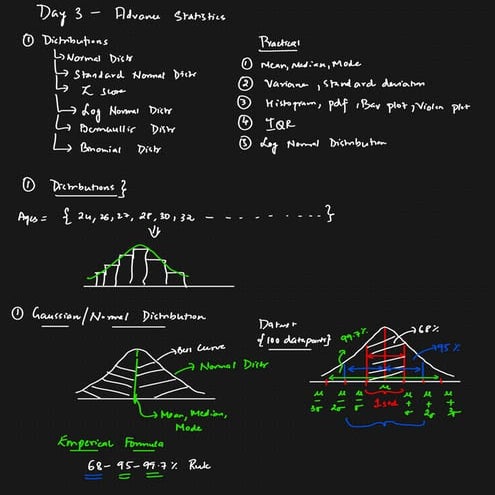 Day 3 – Advance Statistics
① Distributions
Normal Distr
Standard Normal Distr
Z Score
Log Normal Distr
Bernoullie Distr
Binomial Distr
Practical
① Mean, Median, Mode
② Variance, Standard deviation
③ Histogram, pdf, Bar plot, Violin plot
④ IQR
⑤ Log Normal Distribution
① Distributions }
Ages = { 24, 26, 27, 28, 30, 32 - - - - . . . . . . . . }
① Gaussian/Normal Distribution
Bell Curve
Normal Distr
Mean, Median,
Mode
Emperical Formula
68 – 95 – 99.7% Rule
Dataset
{100 datapoints}
99.7%
68%
95%
μ
μ μ μ μ μ
- - - + + +
3σ 2σ σ 1 std σ 2σ